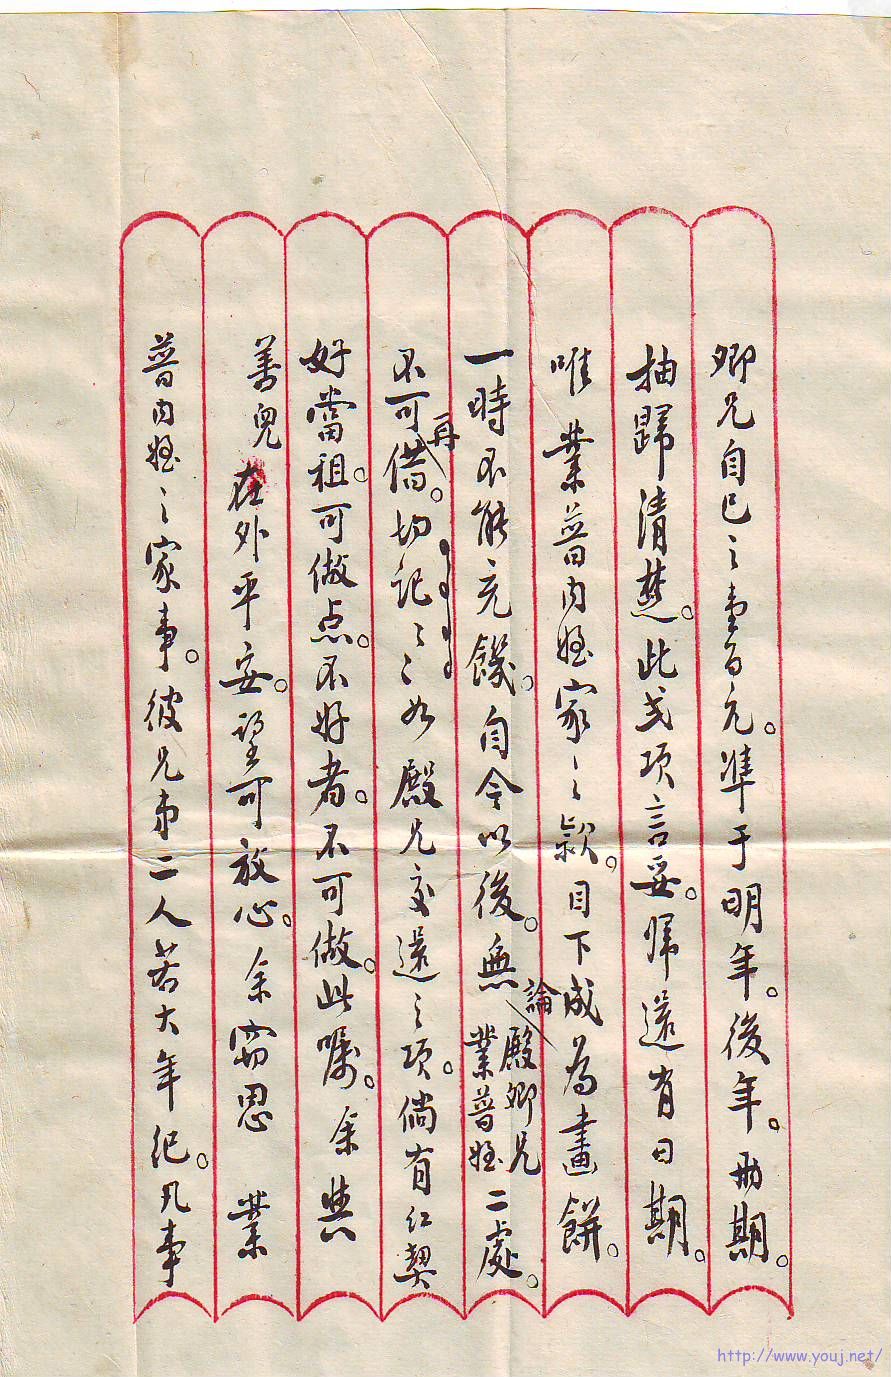 卿兄自己之壹百元。準于明年。後年。兩期。
抽歸清楚。此弍項言妥。歸還有日期。
唯業普內姪家之款。目下成為畫餅。
一時不能充饑。自今以後。無論殿卿兄業普姪二處。
不可再借。切記〻〻如殿兄交還之項。倘有紅契
好當祖。可做点。不好者。不可做。此囑。余與
善兒在外平安。望可放心。余窃思業
普內姪之家事。彼兄弟二人若大年紀。凡事
http://www.youj.net/